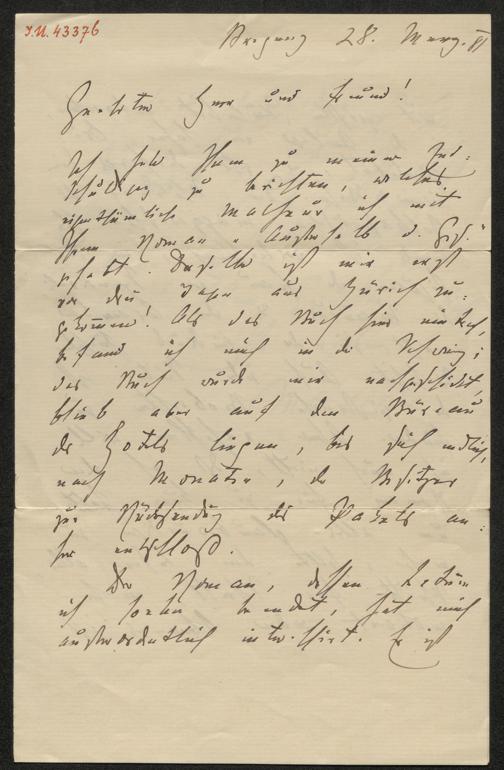 I.N. 43376
Bregenz 28. März. 91
Geehrter Herr und Freund!
Ich habe Ihnen zu meiner Ent-
schuldigung zu berichten, welches
eigenthümliche Malheur ich mit
Ihrem Roman „Außerhalb d. Ges."
gehabt. Derselbe ist mir erst
vor drei Tagen aus Zürich zu-
gekommen! Als das Buch hier einlief,
befand ich mich in der Schweiz;
das Buch wurde mir nachgeschickt,
blieb aber auf dem Bureau
des Hotels liegen, bis sich endlich,
nach Monaten, der Besitzer
zur Rücksendung des Pakets an-
her entschloß.
Der Roman, dessen Lectüre
ich soeben beendet, hat mich
außerordentlich interessirt. Er ist